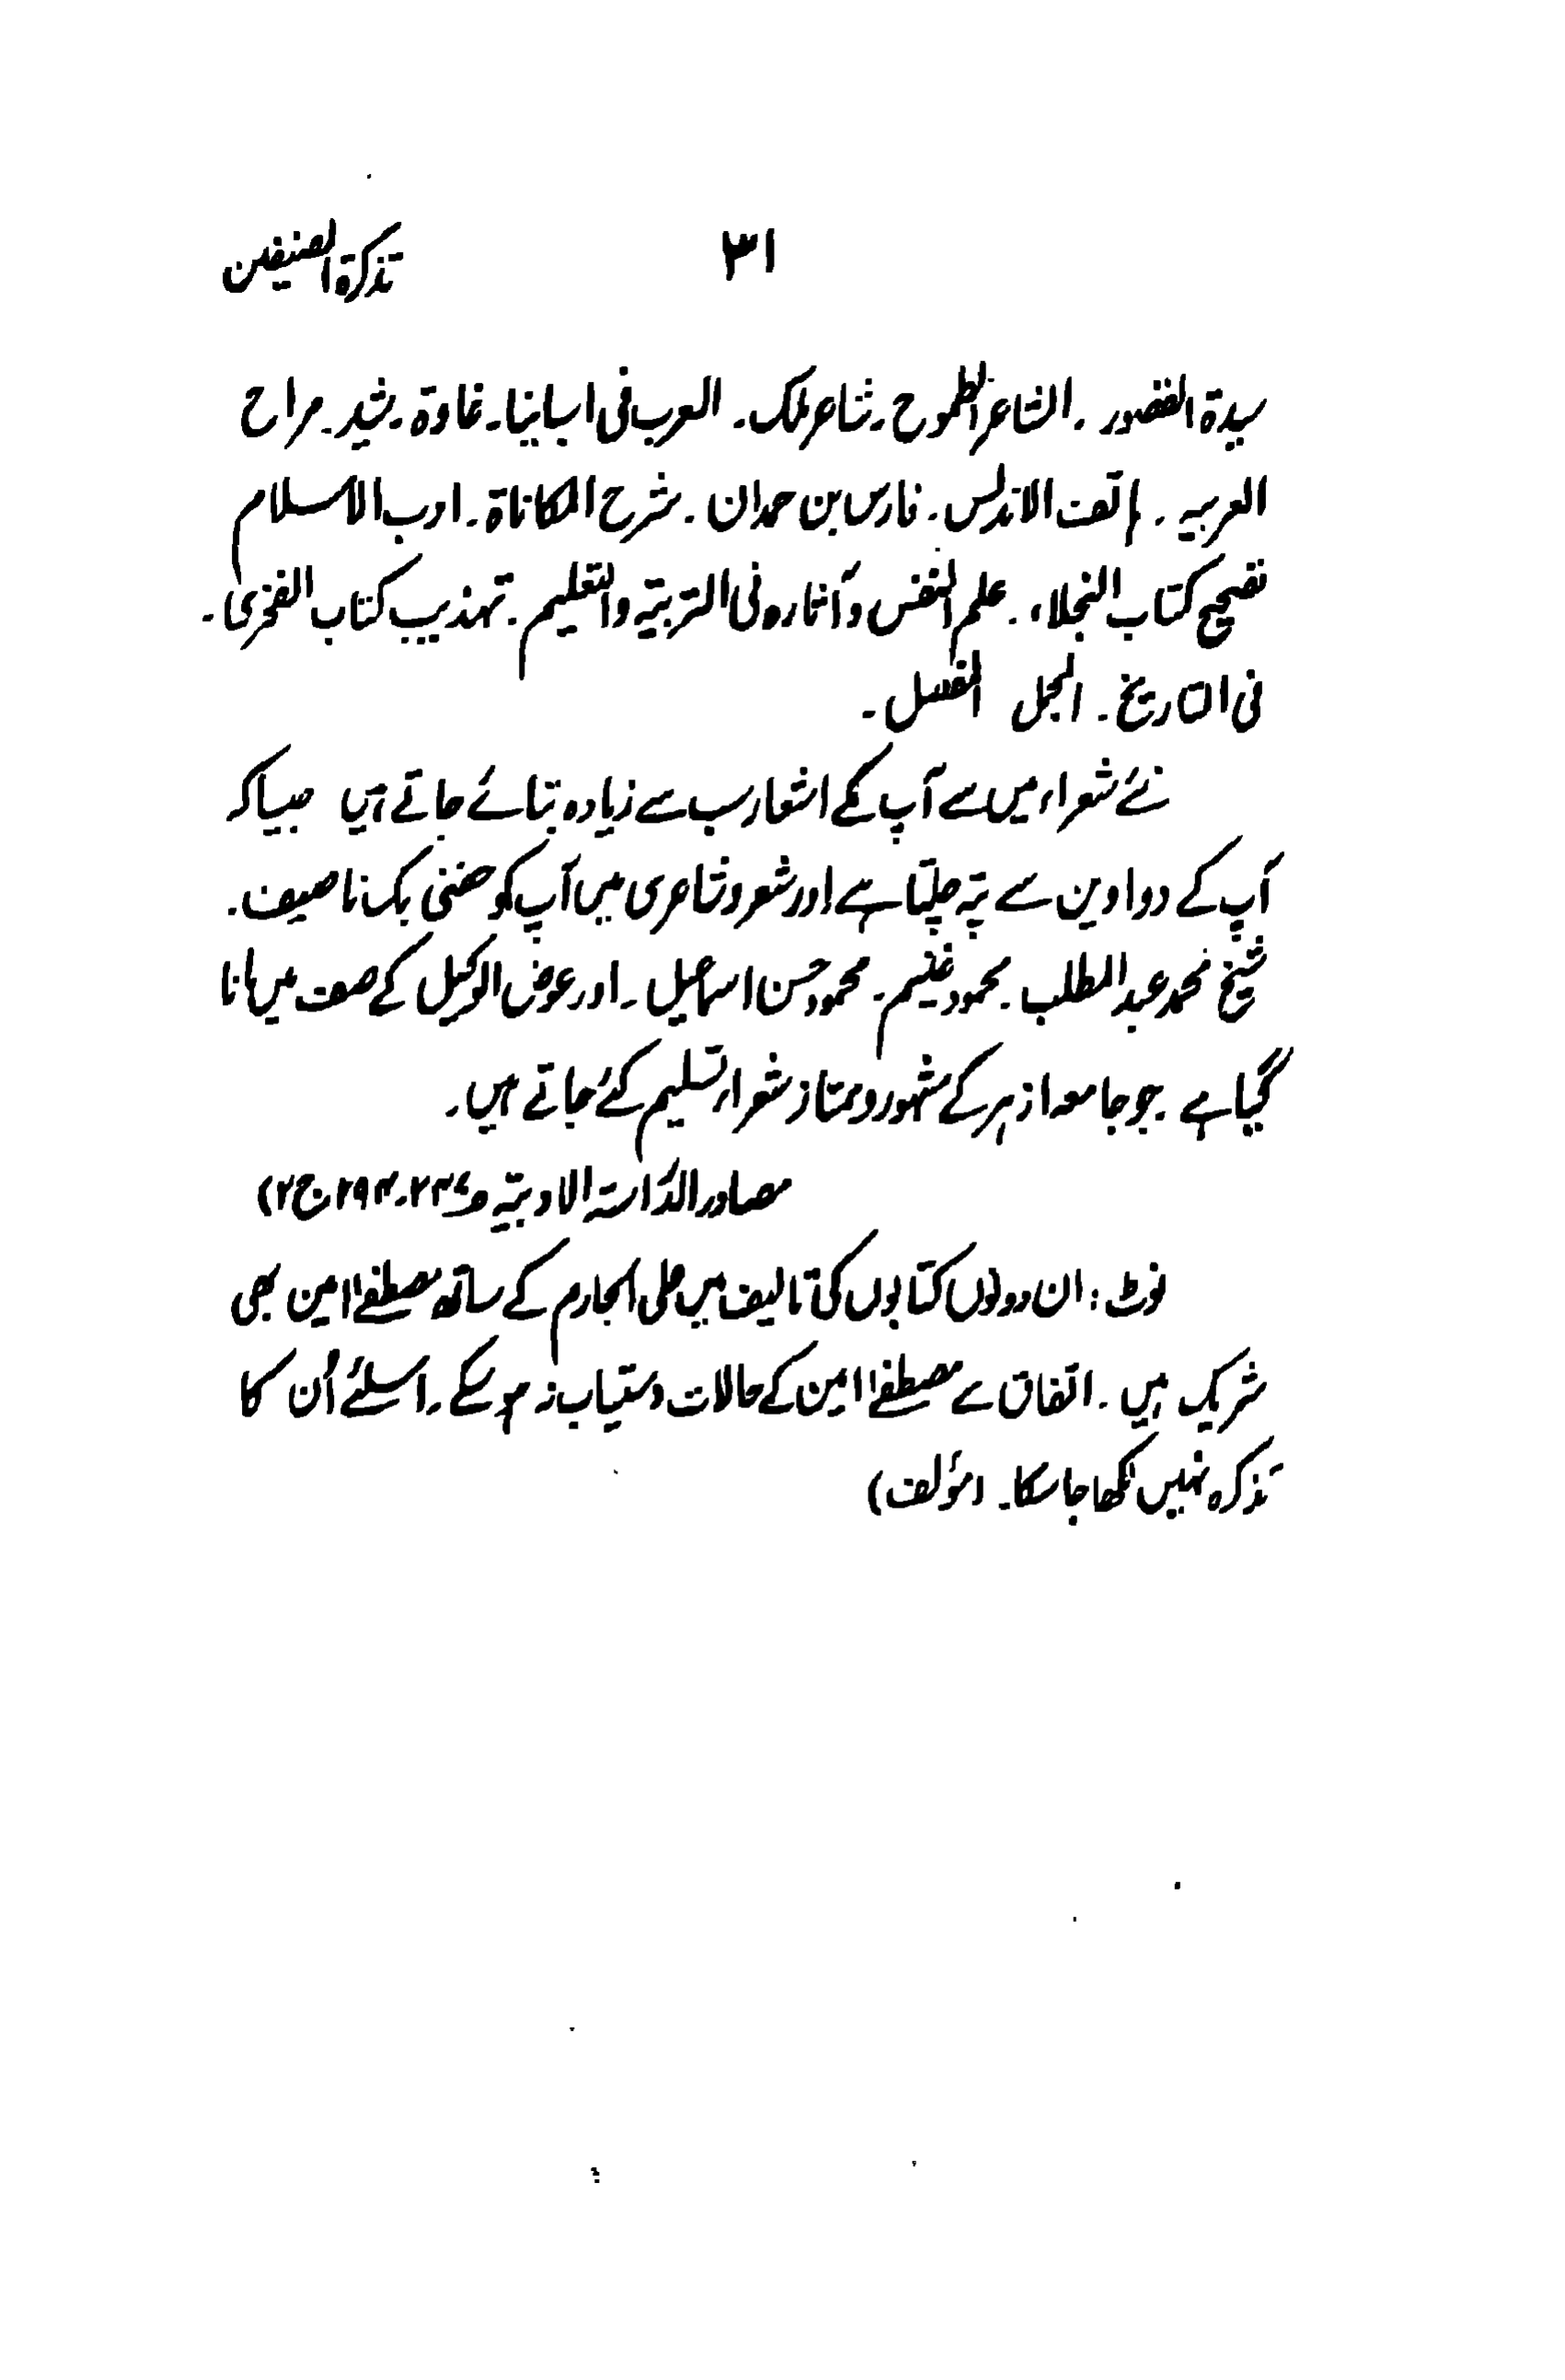 تذکرۃ المصنفین ۳۱
سیدۃ القصور ۔ الشاعر الطموح ۔ شاعر ملک ۔ العرب فی اسبانیا ۔ غادۃ رشید ۔ مراح
العربیہ ۔ ہاتف الاندلس ۔ فارس بن حمدان ۔ شرح المکافاۃ ۔ ادب الاسلام
تصحیح کتاب البخلاء ۔ علم النفس و آثارہ فی التربیۃ والتعلیم ۔ تہذیب کتاب الفخری ۔
فی التاریخ ۔ المجمل المفصل ۔
نئے شعراء میں سے آپ کے اشعار سب سے زیادہ بتائے جاتے ہیں جیسا کہ
آپ کے دواوین سے پتہ چلتا ہے اور شعر و شاعری میں آپ کو حفنی بک ناصیف ۔
شیخ محمد عبد المطلب ۔ محمود غنیم ۔ محمود حسن اسماعیل ۔ اور عوض الوکیل کے صف میں مانا
گیا ہے ۔ جو جامعہ ازہر کے مشہور و ممتاز شعراء تسلیم کئے جاتے ہیں ۔
مصادر الدراسۃ الادبیۃ ج۲)
نوٹ : ان دونوں کتابوں کی تالیف میں علی الجارم کے ساتھ مصطفےٰ امین بھی
شریک ہیں ۔ اتفاق سے مصطفےٰ امین کے حالات دستیاب نہ ہو سکے ۔ اسلئے اُن کا
تذکرہ نہیں لکھا جا سکا ۔ (مؤلف)